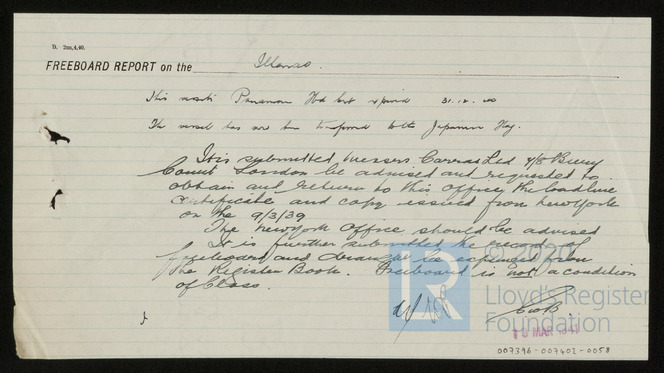 B. 2m,4,40.
FREEBOARD REPORT on the Illenao.
This vessel's Panaman expired 31.12.40
The vessel has now been transferred to the Japanese flag.
It is submitted Messrs Carras Ltd Bury
Court London be advised and requested to
obtain and return to this office the loadline
certificate and copy issued from New York
on the 9/3/39
The New York Office should be advised
It is further submitted the record of
freeboard and draught be expunged from
the Register Book. Freeboard is not a condition
of Class.
© 20
LR
Lloyd's Register
Foundation
MAR
007396-007401-0058